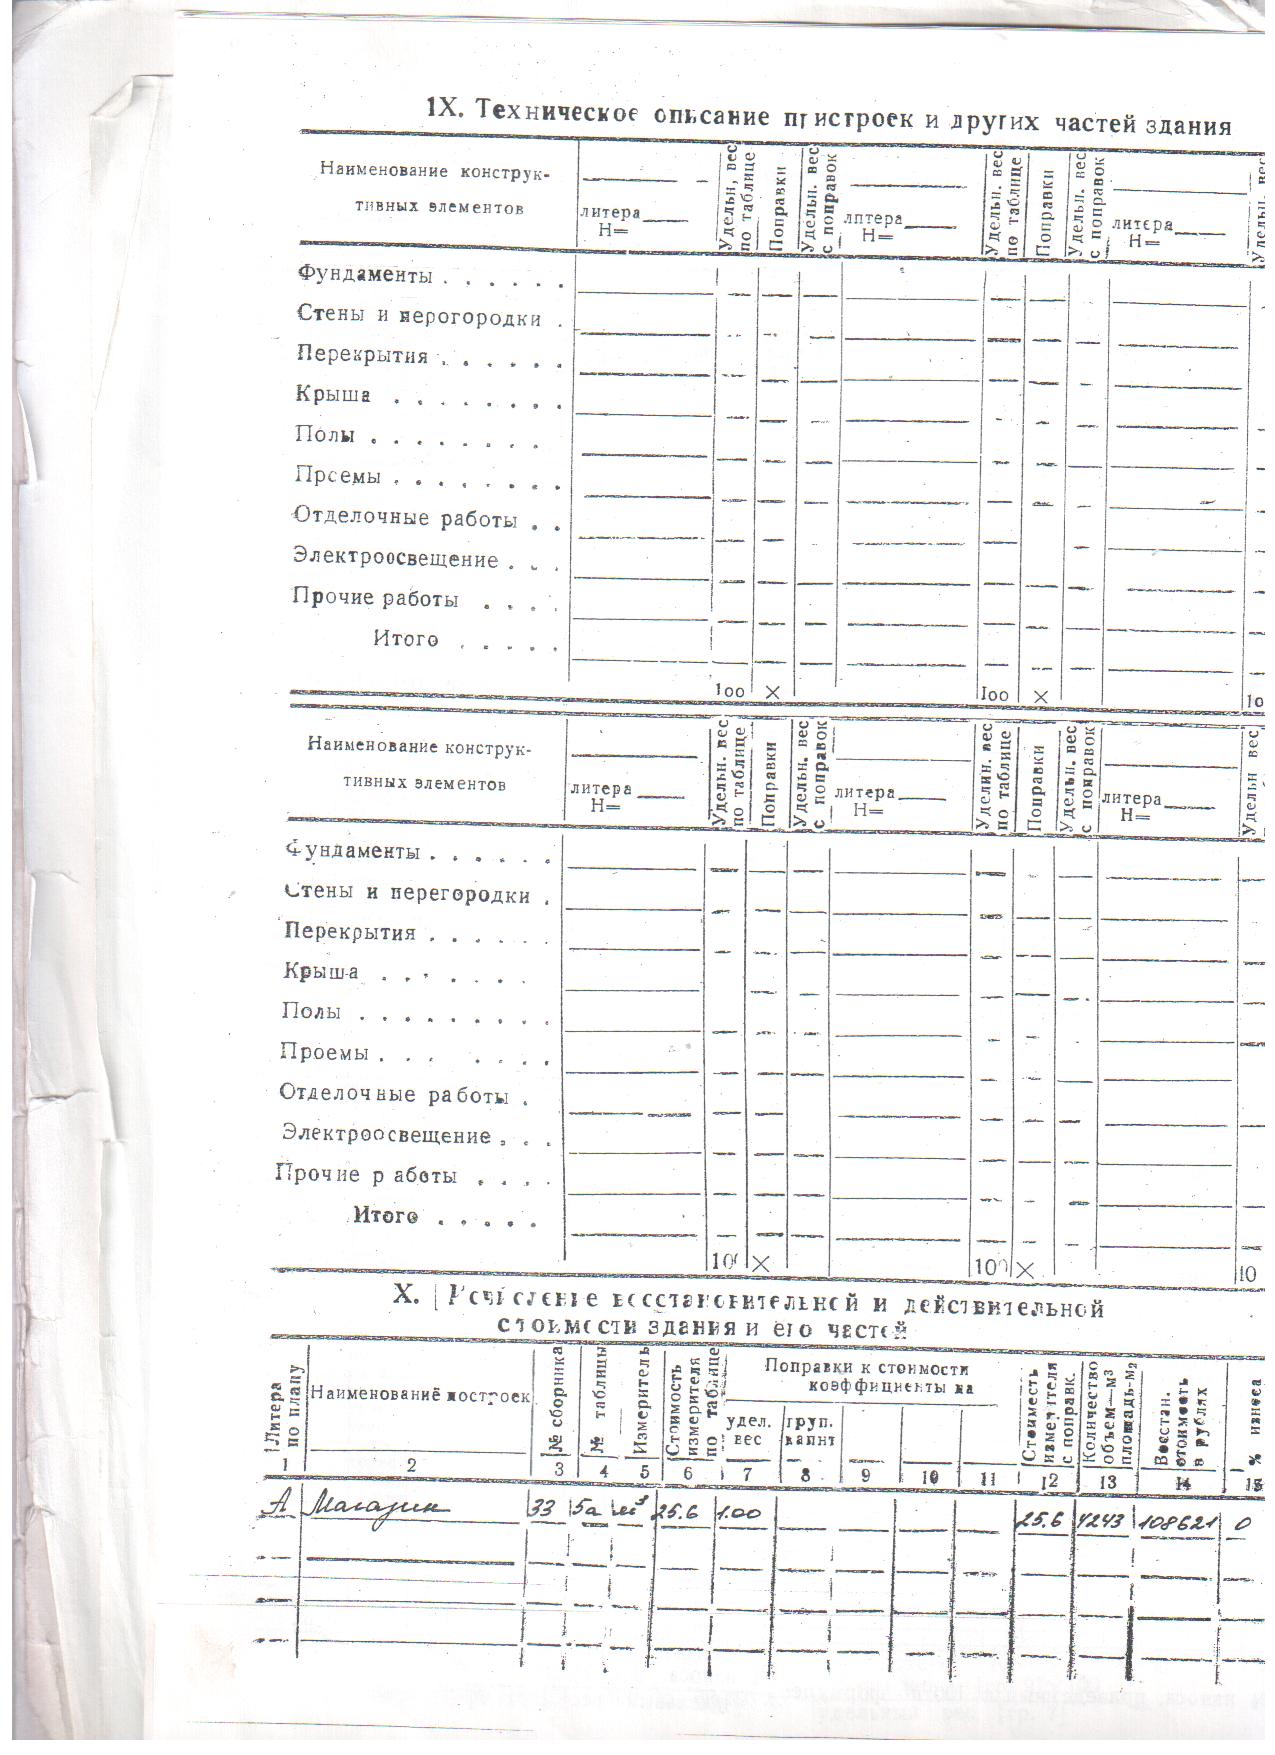 IX. Техническое описание пристроек и других частей здания
Наименование конструк-
тивных элементов
литера
Н=
Удельн, вес
по таблице
Поправки
Удельн. вес
с поправок
литера
Н=
Удельн. вес
по таблице
Поправки
Удельн. вес
с поправок
литера
Н=
Удельн. вес
Фундаменты . . . . . .
Стены и перегородки .
Перекрытия . . . . . .
Крыша . . . . . . . .
Полы . . . . . . . .
Проемы . . . . . . . .
Отделочные работы . .
Электроосвещение . . .
Прочие работы . . . .
Итого . . . . .
100 × 100 × 10
Наименование конструк-
тивных элементов
литера
Н=
Удельн. вес
по таблице
Поправки
Удельн. вес
с поправок
литера
Н=
Уделин. вес
по таблице
Поправки
Удельн. вес
с поправок
литера
Н=
Удельн вес
Фундаменты . . . . . .
Стены и перегородки .
Перекрытия . . . . . .
Крыша . . . . . .
Полы . . . . . . . . .
Проемы . . . . . . .
Отделочные работы .
Электроосвещение . . .
Прочие работы . . . .
Итого . . . . .
100 × 100 × 10
X. Исчисление восстановительной и действительной
стоимости здания и его частей
Литера
по плану
Наименование построек
№ сборника
№ таблицы
Измеритель
Стоимость
измерителя
по таблице
Поправки к стоимости
коэффициенты на
удел.
вес
груп.
капит
Стоимость
измерителя
с поправк.
Количество
объем—м3
площадь—м2
Восстан.
стоимость
в рублях
% износа
1 2 3 4 5 6 7 8 9 10 11 12 13 14 15
А Магазин 33 5а м³ 25.6 1.00 25.6 4243 108621 0